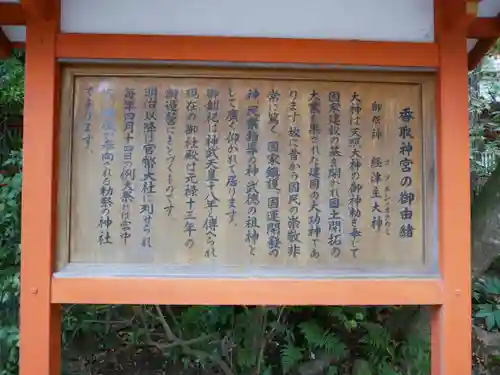 香取神宮の御由緒
御祭神 経津主大神
ふつぬしのおおかみ
大神は天照大神の御神勅を奉して
国家建設の基を開かれ国土開拓の
大業を果された建国の大功神であ
ります 故に昔から国民の崇敬非
常に篤く 国家鎮護 国運開発の
神 民業指導の神 武徳の祖神と
して廣く仰がれて居ります。
御創祀は神武天皇十八年と傳へられ
現在の御社殿は元禄十三年の
御造営にもとづくものです。
明治以降は官幣大社に列せられ
毎年四月十四日の例大祭には宮中
から御使が参向される勅祭の神社
であります。